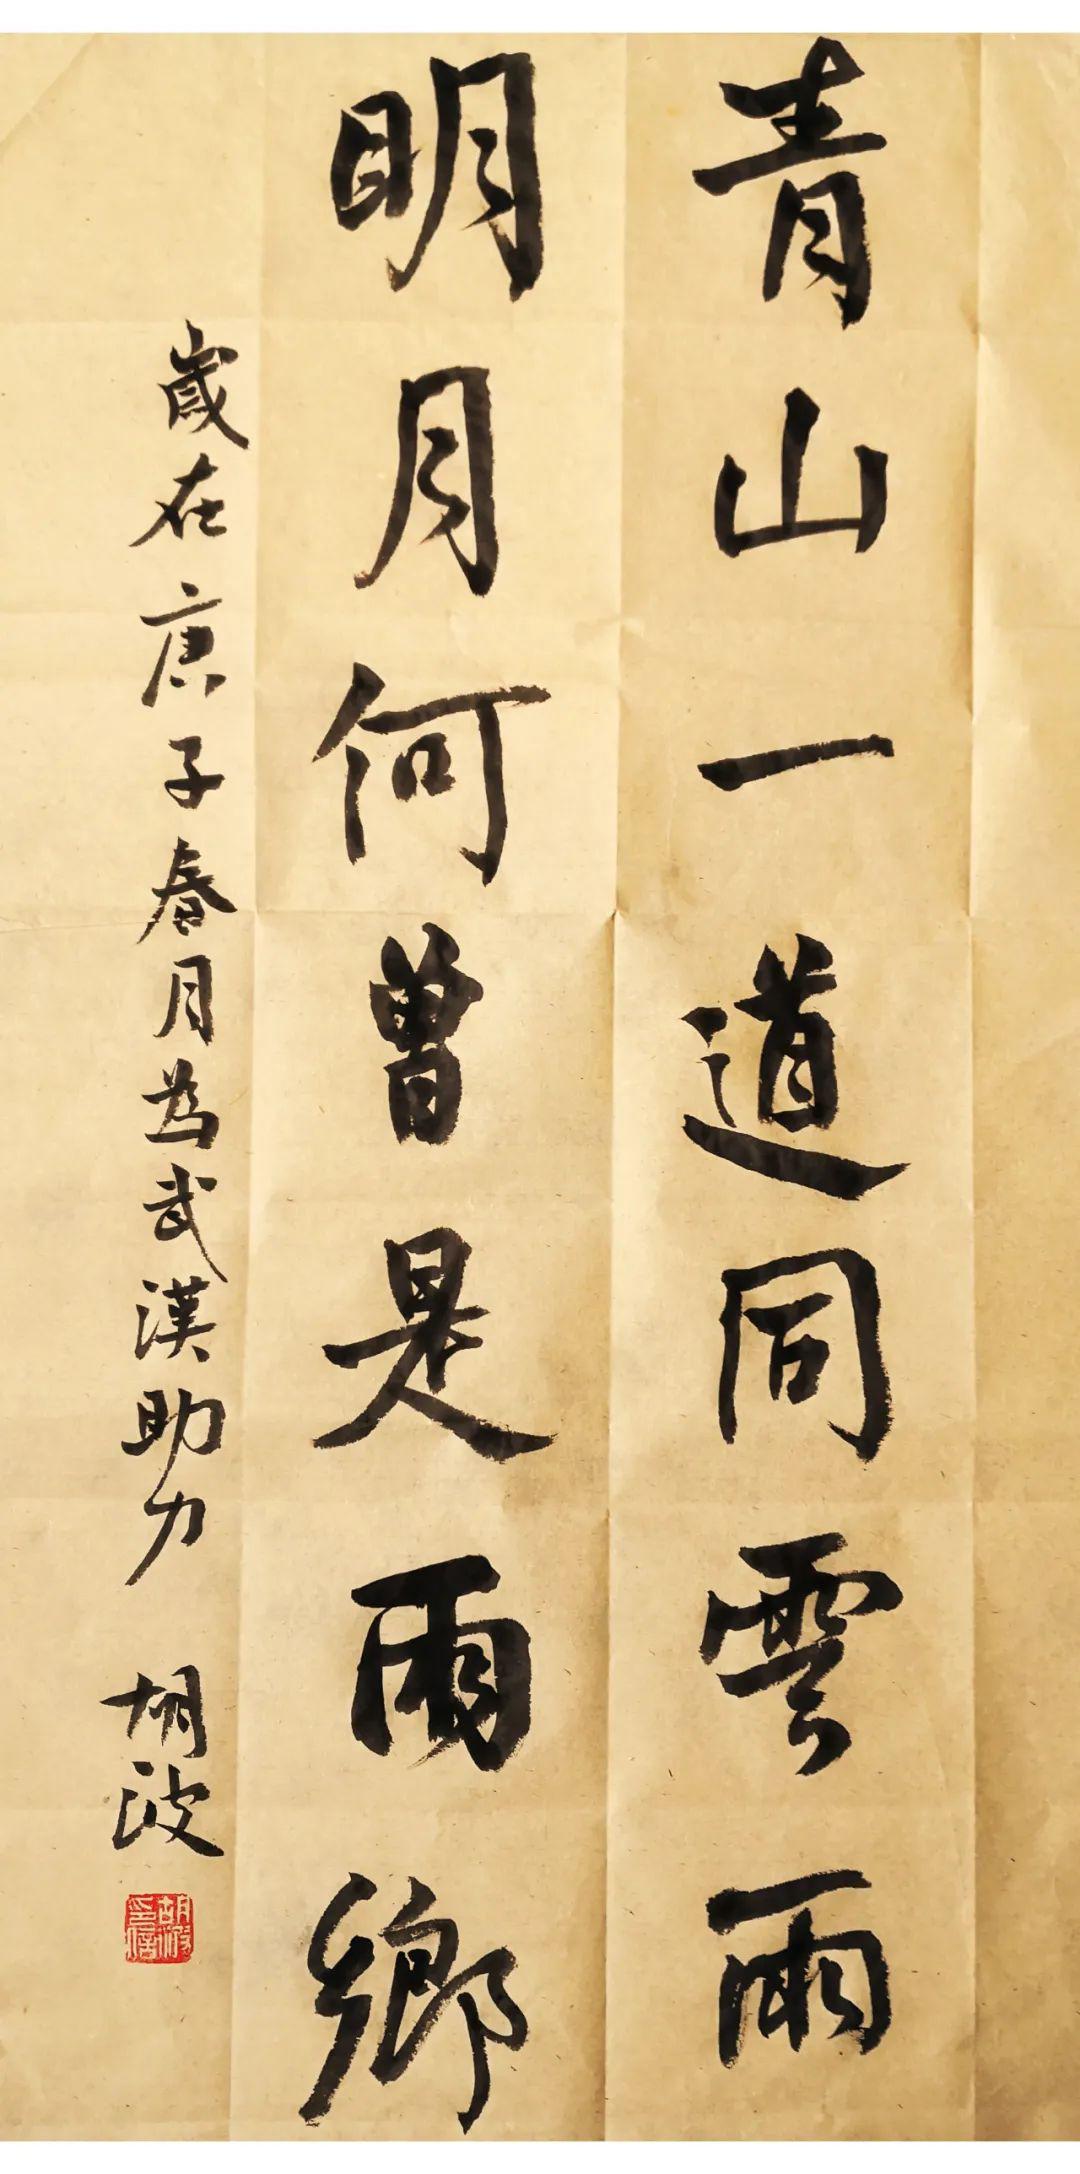 青山一道同雲雨
明月何曾是兩鄉
歲在庚子春月為武漢助力
胡波
胡波印信